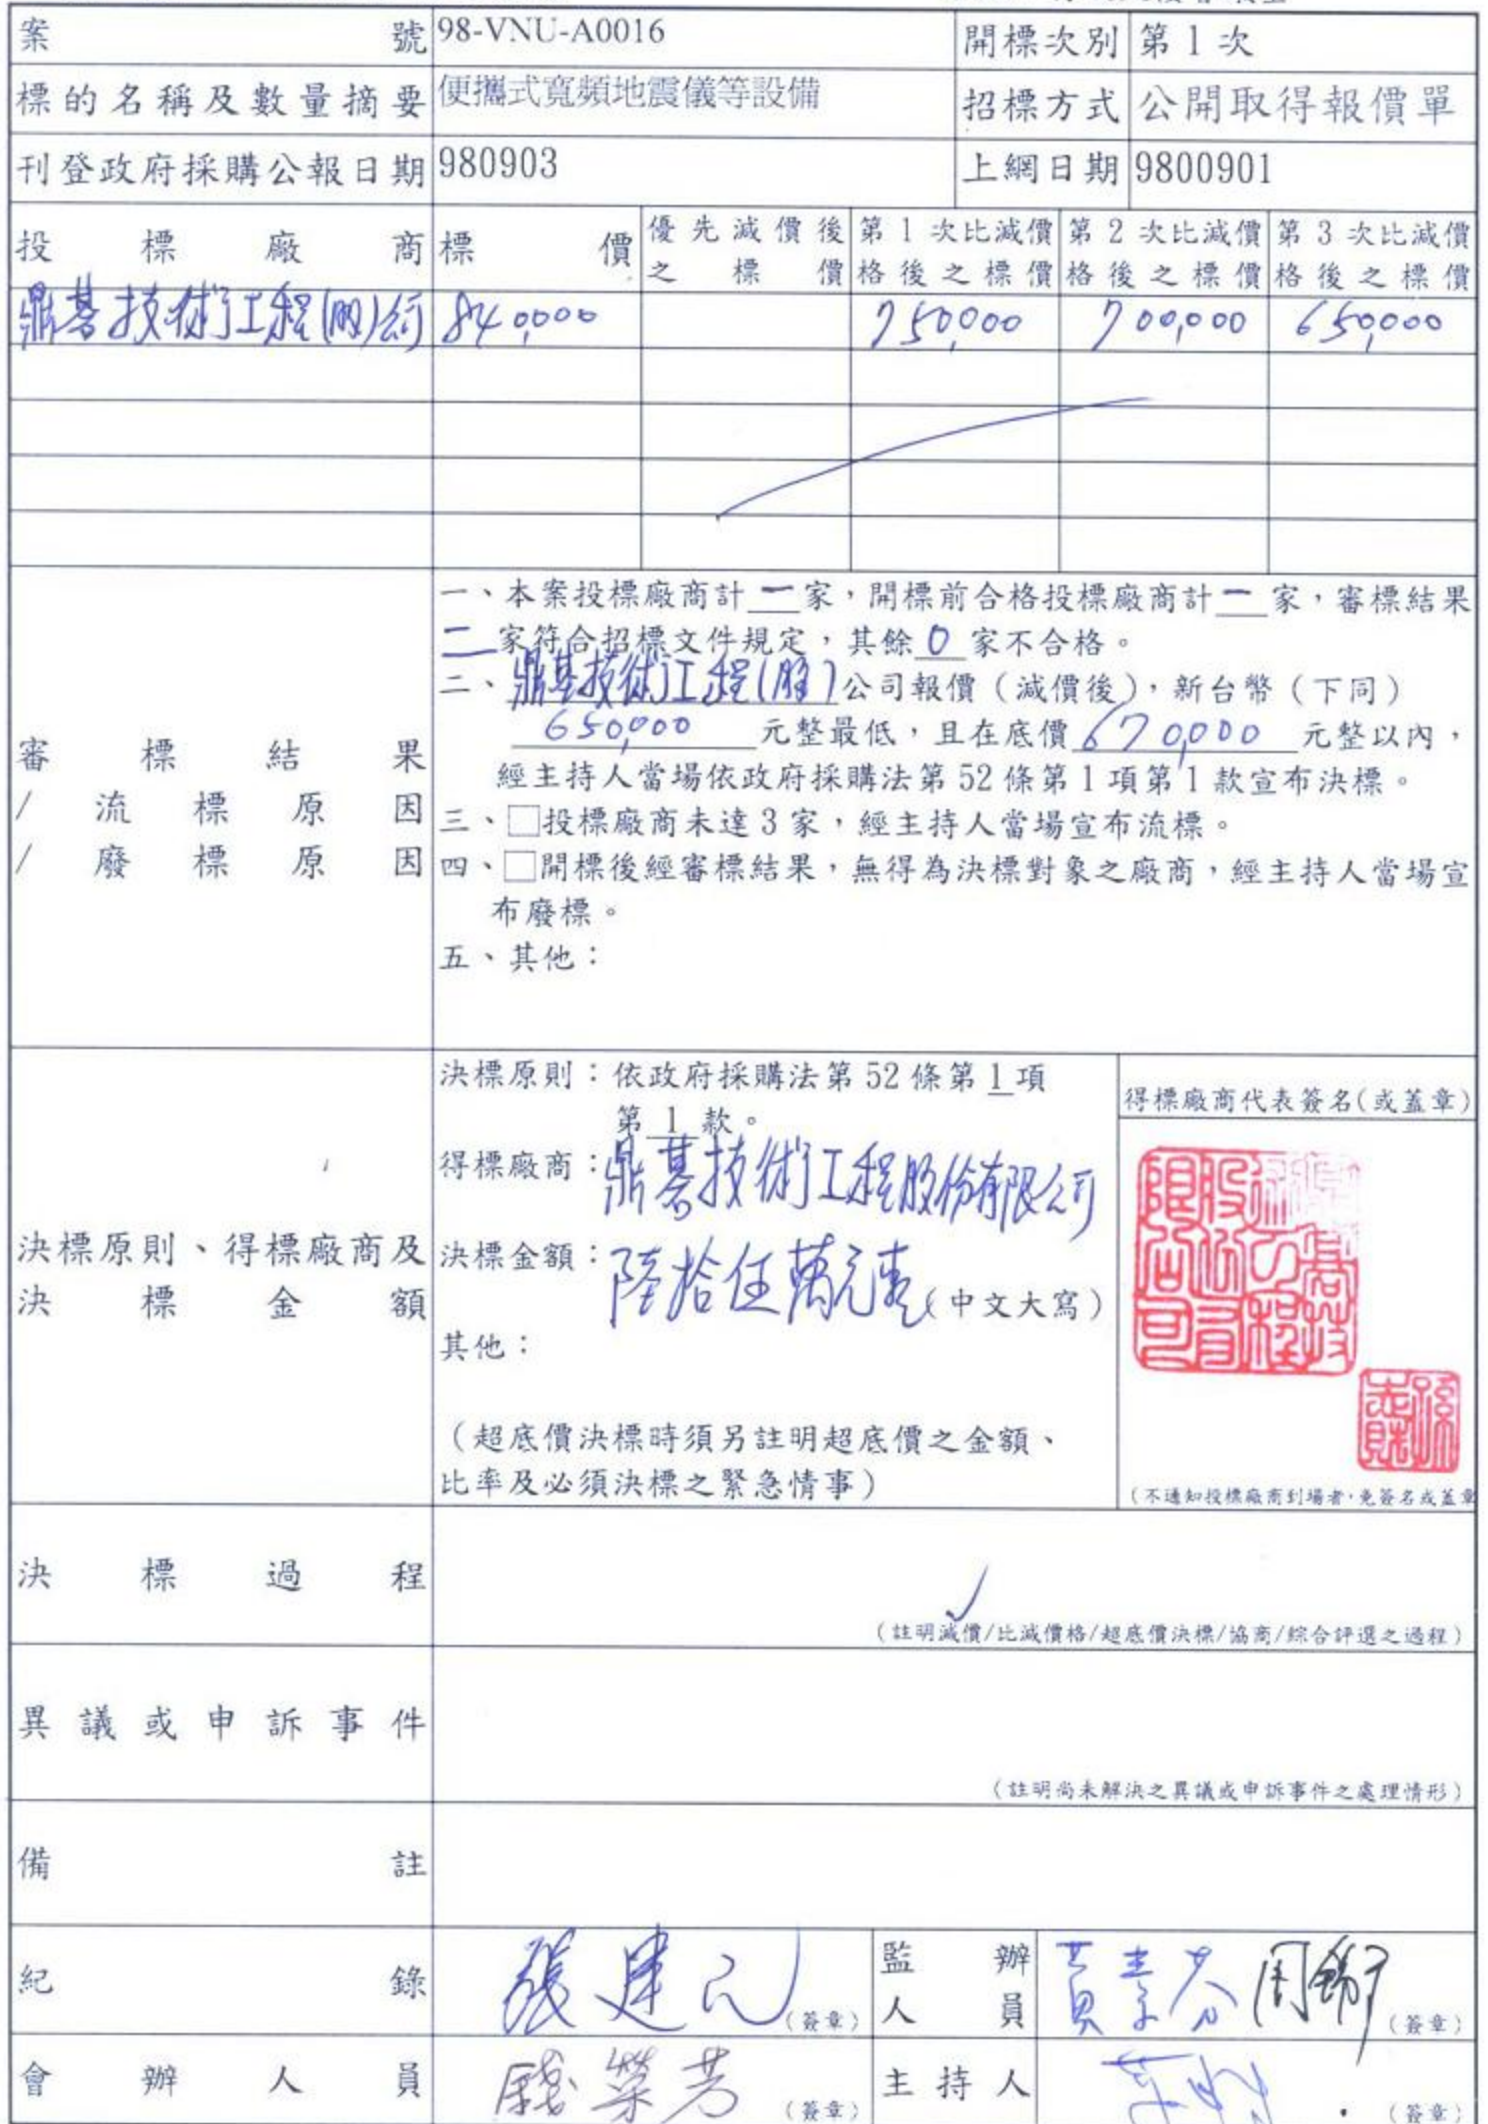 案號 98-VNU-A0016 開標次別 第1次
標的名稱及數量摘要 便攜式寬頻地震儀等設備 招標方式 公開取得報價單
刊登政府採購公報日期 980903 上網日期 9800901
投標廠商 標價 優先減價後之標價 第1次比減價格後之標價 第2次比減價格後之標價 第3次比減價格後之標價
鼎碁技術工程(股)公司 840,000 750,000 700,000 650,000
審標結果
/流標原因
/廢標原因
一、本案投標廠商計一家，開標前合格投標廠商計一家，審標結果
一家符合招標文件規定，其餘0家不合格。
二、鼎碁技術工程(股)公司報價（減價後），新台幣（下同）
650,000元整最低，且在底價670,000元整以內，
經主持人當場依政府採購法第52條第1項第1款宣布決標。
三、□投標廠商未達3家，經主持人當場宣布流標。
四、□開標後經審標結果，無得為決標對象之廠商，經主持人當場宣
布廢標。
五、其他：
決標原則、得標廠商及
決標金額
決標原則：依政府採購法第52條第1項
第1款。
得標廠商：鼎碁技術工程股份有限公司
決標金額：陸拾伍萬元整（中文大寫）
其他：
（超底價決標時須另註明超底價之金額、
比率及必須決標之緊急情事）
得標廠商代表簽名(或蓋章)
（不通知投標廠商到場者，免簽名或蓋章
決標過程
（註明減價/比減價格/超底價決標/協商/綜合評選之過程）
異議或申訴事件
（註明尚未解決之異議或申訴事件之處理情形）
備註
紀錄 張建 （簽章） 監辦人員 黃素芬 周 （簽章）
會辦人員 錢榮芳 （簽章） 主持人 （簽章）